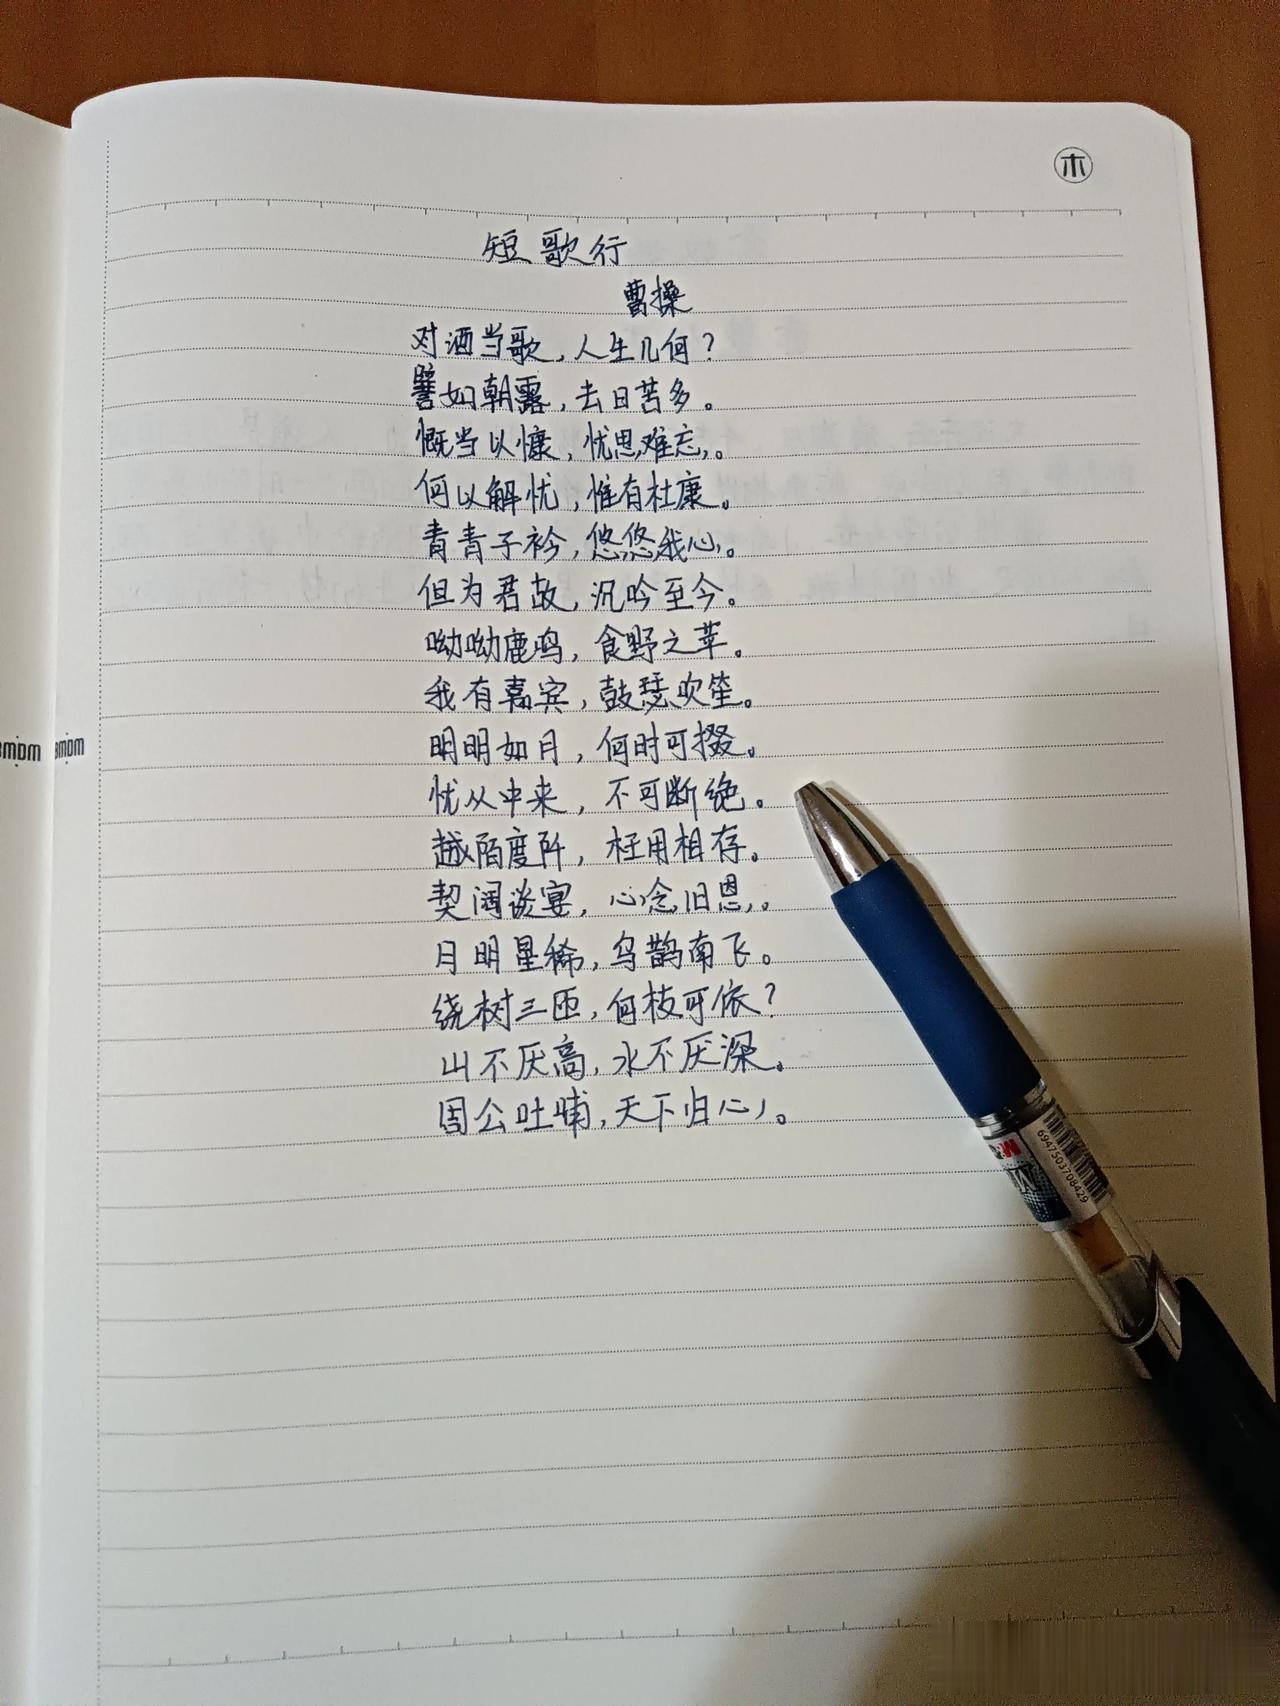 木
短歌行
曹操
对酒当歌，人生几何？
譬如朝露，去日苦多。
慨当以慷，忧思难忘。
何以解忧，惟有杜康。
青青子衿，悠悠我心。
但为君故，沉吟至今。
呦呦鹿鸣，食野之苹。
我有嘉宾，鼓瑟吹笙。
明明如月，何时可掇。
忧从中来，不可断绝。
越陌度阡，枉用相存。
契阔谈宴，心念旧恩。
月明星稀，乌鹊南飞。
绕树三匝，何枝可依？
山不厌高，水不厌深。
周公吐哺，天下归心。
6947503708429